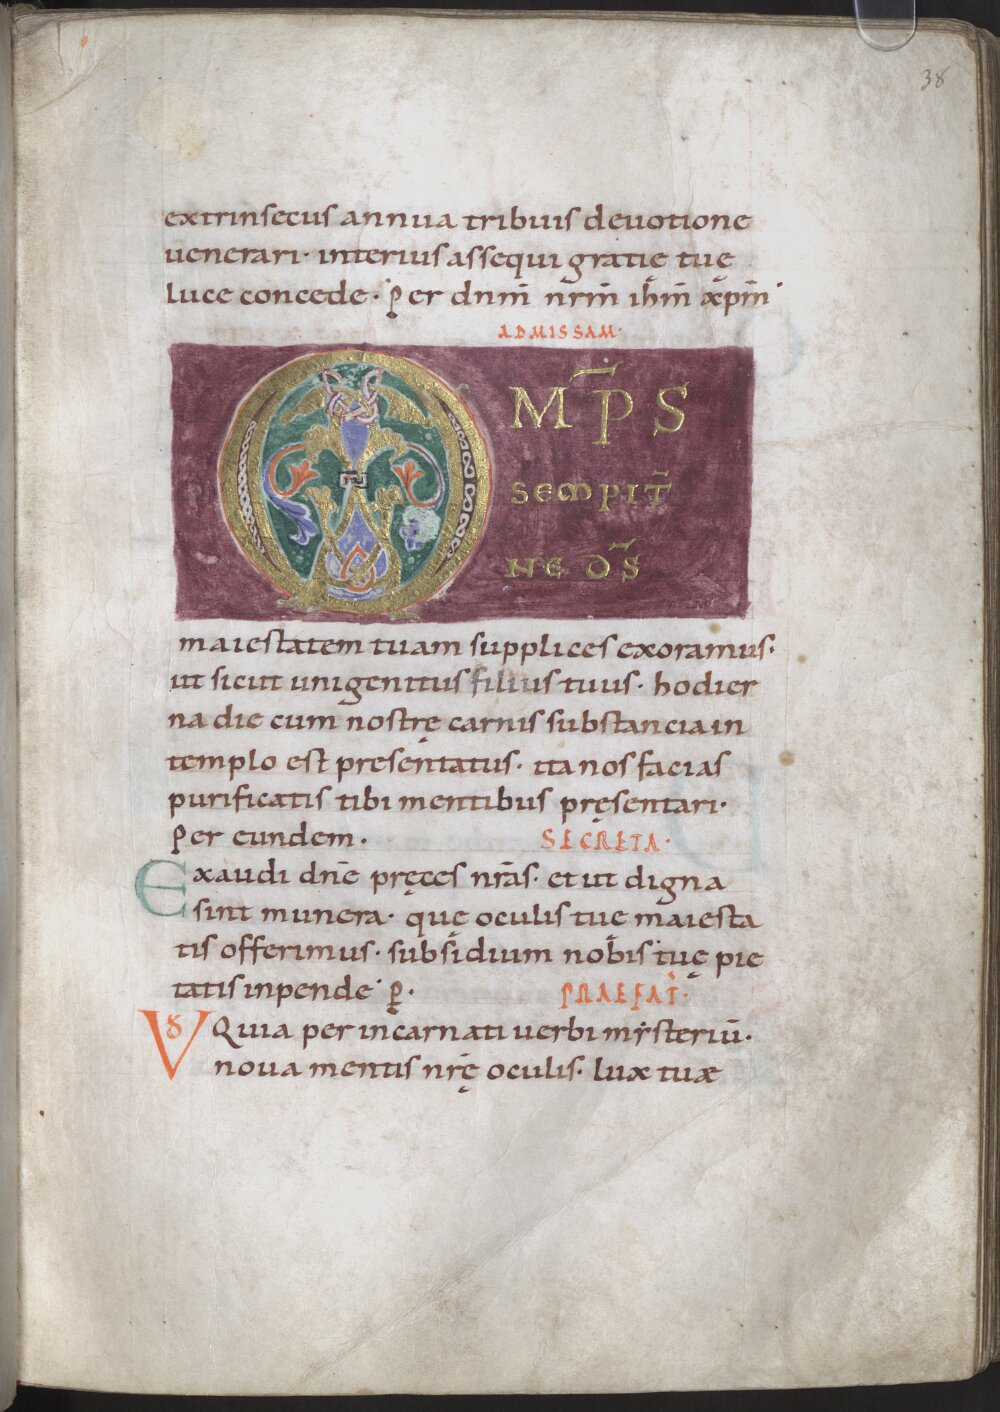 38
extrinsecus annua tribuis deuotione
uenerari· interius assequi gratię tuę
luce concede· Per dnm̄ nr̄m ih̄m xp̄m
ADMISSAM·
OMP̄S
SEMPIT̄
NE DS̄
maiestatem tuam supplices exoramus·
ut sicut unigenitus filius tuus· hodier
na die cum nostrę carnis substancia in
templo est presentatus· ita nos facias
purificatis tibi mentibus pręsentari·
Per eundem· SECRETA·
Exaudi dn̄e pręces nr̄as· et ut digna
sint munera· quę oculis tuę maiesta
tis offerimus· subsidium nobis tuę pie
tatis inpende· p̱· PRAEFAT̄·
VD Quia per incarnati uerbi mẏsteriū·
noua mentis nr̄ę oculis· lux tuæ